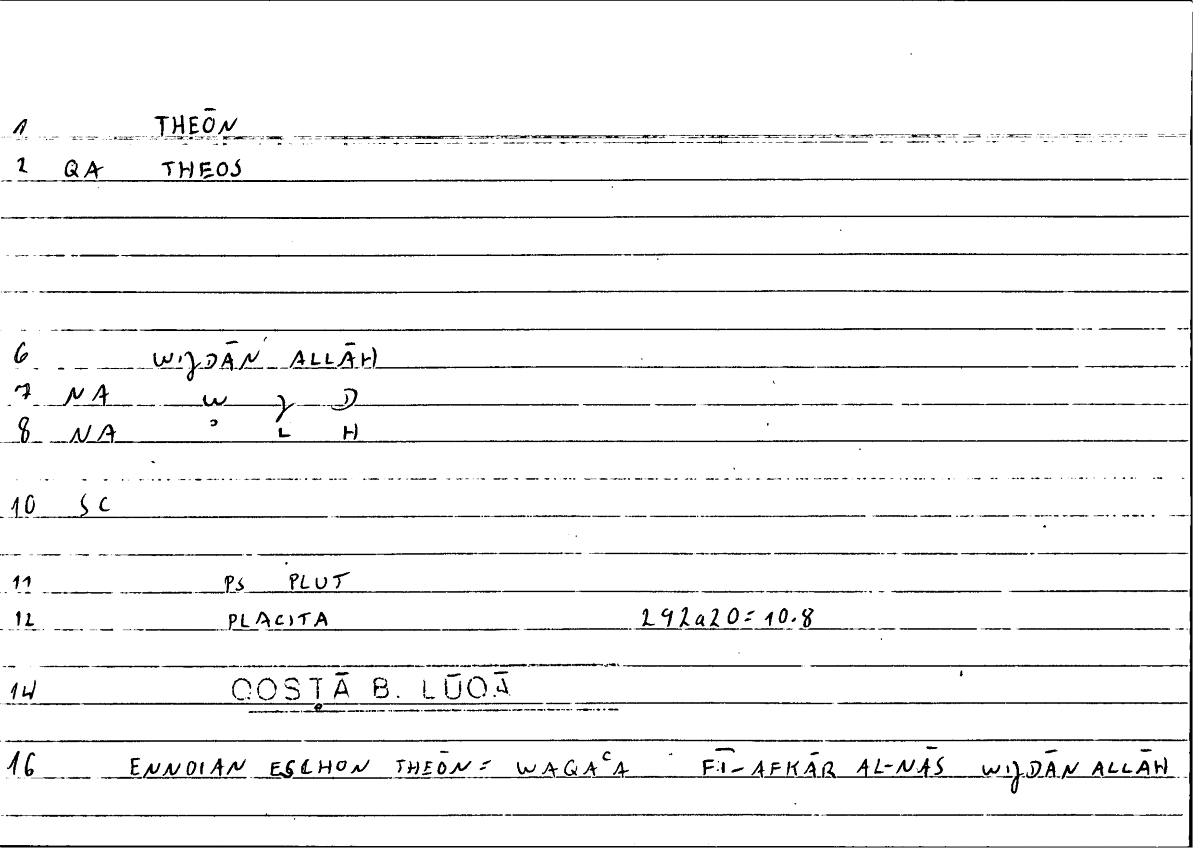 1 THEŌN
2 QA THEOS
6 WIJDĀN ALLĀH
7 NA W J D
8 NA ʾ L H
10 SC
11 PS PLUT
12 PLACITA 292a20=10.8
14 QOSṬĀ B. LŪQĀ
16 ENNOIAN ESCHON THEŌN = WAQAʿA FĪ-AFKĀR AL-NĀS WIJDĀN ALLĀH